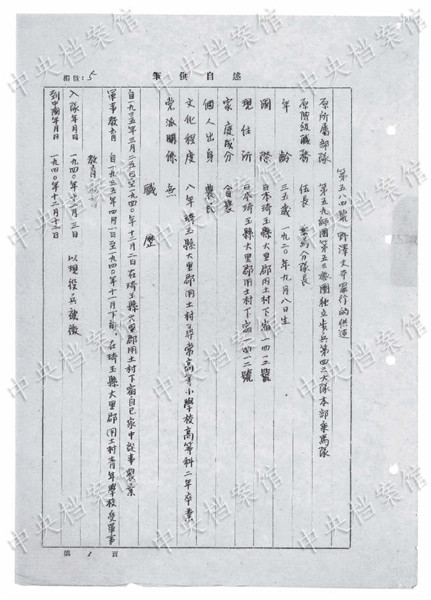 述自供筆
第五八四號 野澤文平罪行的供述
原所屬部隊 第五九師團第五三旅團獨立步兵第四三大隊本部乘馬隊
原階級職務 伍長 乘馬分隊長
年齡 三五歲 一九二〇年九月八日生
國際 日本埼玉縣大里郡用土村下宿一四一二號
現住所 日本埼玉縣大里郡用土村下宿一四一二號
家庭成分 貧農
個人出身 農民
文化程度 八年 埼玉縣大里郡用土村尋常高等小學校高等科二年卒業
黨派關係 無
職歷
自一九三五年三月二五日至一九四〇年十二月二日在埼玉縣大里郡用土村下宿自己家中從事農業
軍事教育 自一九三五年四月一日至一九四〇年十一月下旬、在埼玉縣大里郡用土村青年學校受軍事
教育
入隊年月日 一九四〇年十二月三日 以現役兵被徵
到中國年月日 一九四〇年十二月十三日
第 1 頁
中央档案馆